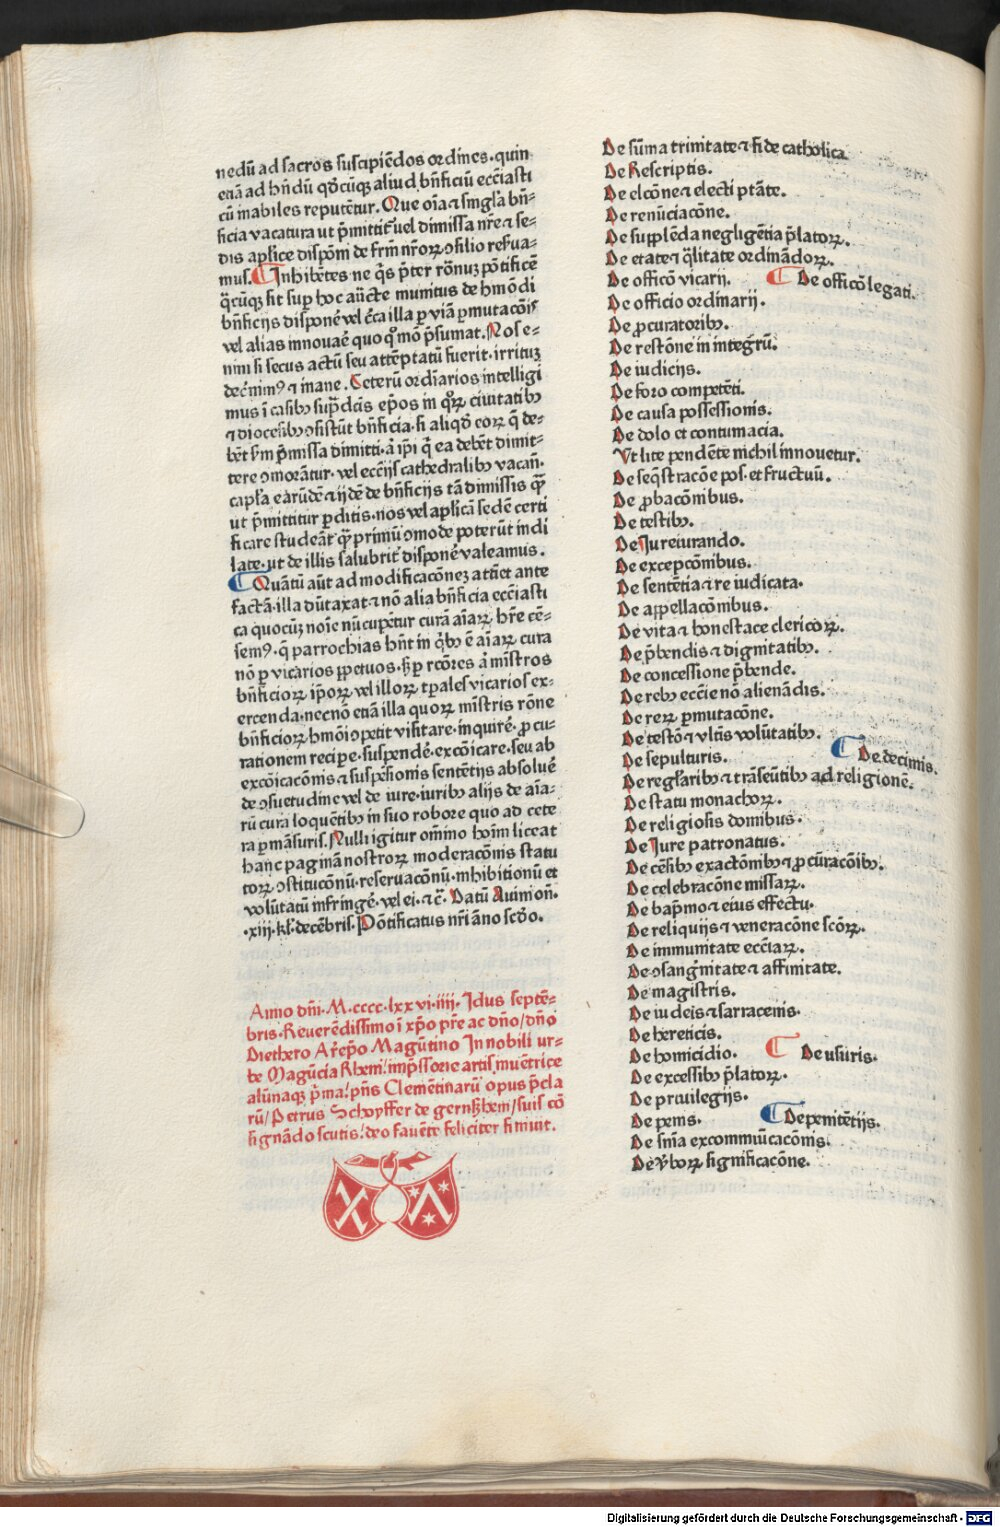 nedū ad sacros suscipiēdos ordines. quin
etiā ad hn̄dū qd̄cūqꝫ aliud bn̄ficiū ecc̄iasti
cū inabiles reputētur. Que oīa ⁊ singl̄a bn̄-
ficia vacatura ut p̄mittit᷑ uel dimissa nr̄e ⁊ se-
dis aplīce disp̄om̄ de frm̄ nr̄oꝝ ↄsilio res̄ua-
mus. Inhibētes ne q̄s p̄ter rōnuꝫ pōtificē
q̄cūqꝫ sit sup̱ hoc auc̄te munitus de hmōdi
bn̄ficijs disponē vel ēca illa ꝑ viā ꝑmutacōis
vel alias innouaē quoquō mō p̄sumat. Nos e-
nim si secus actū seu attēptatū fuerit. irrituꝫ
dec̄nimꝰ ⁊ inane. Ceterū ordīarios intelligi
mus ī casibꝫ sup̄dcīs ep̄os in qͦꝝ ciuitatibꝫ
⁊ diocesibꝫ ↄsistūt bn̄ficia. si aliqd̄ eoꝝ q̄ de-
bēt s̄m p̄missa dimitti. a īpi q̄ ea debēt dimit-
tere ↄmorātur. vel ecc̄ijs cathedralibꝫ vacan̄.
capl̄a earūdē ⁊ ijdē de bn̄ficijs tā dimissis q̄ꝫ
ut p̄mittitur ꝑditis. nos vel aplīcā sedē certi
ficare studeāt q̄ꝫ primū ↄmode poterūt in di
late. ut de illis salubrit᷑ disponē valeamus.
Quātū aūt ad modificacōneꝫ attīct ante
factā. illa dūtaxat ⁊ nō alia bn̄ficia ecc̄iasti
ca quocūꝫ noīe nūcupētur curā aīaꝝ hr̄e cē-
semꝰ. q̄ parrochias hn̄t in q̄bꝫ ē aīaꝝ cura
nō ꝑ vicarios ꝑpetuos. sꝫ ꝑ rcōres a mīstros
bn̄ficioꝝ ip̄oꝝ vel illoꝝ tp̄ales vicarios ex-
ercenda. necnō etiā illa quoꝝ mīstris rōne
bn̄ficioꝝ hmōi ↄpetit visitare. inquirē. ꝓcu-
rationem recipe. suspendē. excōicare. seu ab
excōicacōnis ⁊ suspēsionis sentētijs absoluē
de ↄsuetudine vel de iure. iuribꝫ alijs de aīa-
rū cura loquētibꝫ in suo robore quo ad cete
ra ꝑmāsuris. Nulli igitur omīno hoīm liceat
hanc paginā nostroꝝ moderacōnis statu
torꝝ ↄstitucōnū. reseruacōnū. inhibitionū et
volūtatū infringē. vel ei. ⁊c̄. Datū Auinion̄.
.xiii. kl̄. decēbris. Pōtificatus nr̄i āno scd̄o.
Anno dn̄i. M.cccc.lxxvi. iiii. Idus septē-
bris. Reuerēdissimo ī xp̄o pr̄e ac dn̄o / dn̄o
Diethero Ar̄ep̄o Magūtino In nobili ur-
be Magūcia Rheni / imp̄ssorie artis īuētrice
alūnaqꝫ p̄ma / p̄ns Clemētinarū opus p̄cla
rū / Petrus Schoyffer de gernßhem / suis cō
signādo scutis / deo fauēte feliciter finiuit.
De sūma trinitate ⁊ fide catholica
De Rescriptis.
De elcōne ⁊ electi ptāte.
De renūciacōne.
De supplēda negligētia p̄latoꝝ.
De etate ⁊ q̄litate ordinādoꝝ.
De officō vicarij. De officō legati.
De officio ordinarij.
De ꝓcuratoribꝫ.
De restōne in integrū.
De iudicijs.
De foro competēti.
De causa possessionis.
De dolo et contumacia.
Vt lite pendēte nichil innouetur.
De seq̄stracōe pos. et fructuū.
De ꝓbacōnibus.
De testibꝫ.
De Jureiurando.
De excepcōnibus.
De sentētia ⁊ re iudicata.
De appellacōnibus.
De vita ⁊ honestace clericoꝝ.
De p̄bendis ⁊ dignitatibꝫ.
De concessione p̄bende.
De rebꝫ ecc̄ie nō alienādis.
De rerꝝ ꝑmutacōne.
De testō ⁊ vltīs volūtatibꝫ.
De sepulturis. De decimis.
De regl̄aribꝫ ⁊ trāseūtibꝫ ad religionē.
De statu monachoꝝ.
De religiosis domibus.
De Jure patronatus.
De cēsibꝫ exactōnibꝫ ⁊ ꝓcūracōibꝫ.
De celebracōne missaꝝ.
De bap̄mo ⁊ eius effectu.
De reliquijs ⁊ veneracōne scōꝝ.
De immunitate ecc̄iaꝝ.
De ↄsang̊nitate ⁊ affinitate.
De magistris.
De iudeis ⁊ sarracenis.
De hereticis.
De homicidio. De usuris.
De excessibꝫ p̄latoꝝ.
De preuilegijs.
De penis. De penitētijs.
De sn̄ia excommūicacōnis.
De v̄boꝝ significacōne.
Digitalisierung gefördert durch die Deutsche Forschungsgemeinschaft - DFG